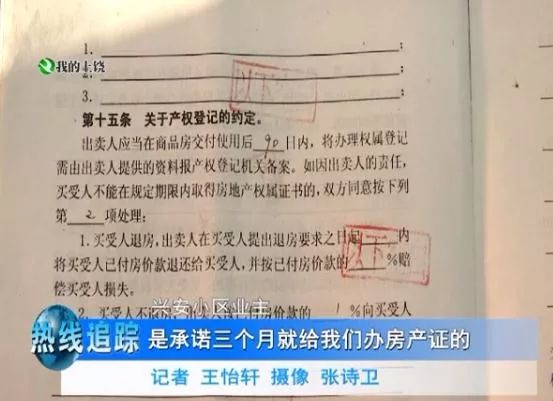 我的上饶
1. ;
2. ;
3. 。
以下
第十五条 关于产权登记的约定。
出卖人应当在商品房交付使用后 90 日内，将办理权属登记
需由出卖人提供的资料报产权登记机关备案。如因出卖人的责任，
买受人不能在规定期限内取得房地产权属证书的，双方同意按下列
第 2 项处理：
1. 买受人退房，出卖人在买受人提出退房要求之日起 内
将买受人已付房价款退还给买受人，并按已付房价款的 %赔
偿买受人损失。
以下
2. 买受人不退房 房价款的 1 %向买受人
兴安小区业主
热线追踪
是承诺三个月就给我们办房产证的
记者 王怡轩 摄像 张诗卫